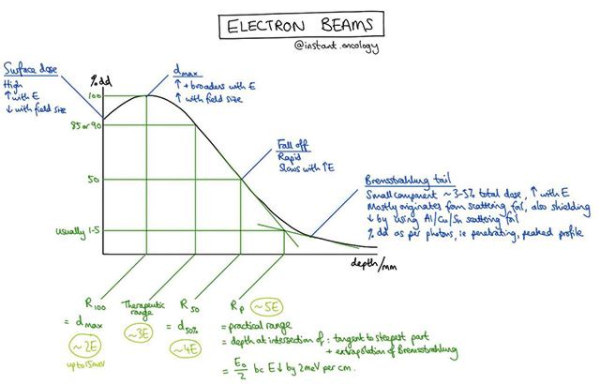 ELECTRON BEAMS
@instant.oncology
Surface dose
High
↑ with E
↓ with field size
% dd
dmax
↑ + broadens with E
↑ with field size
100
85 or 90
50
usually 1-5
Fall off
Rapid
Slows with ↑E
Bremsstrahlung tail
Small component ~3-5% total dose, ↑ with E
Mostly originates from scattering foil, also shielding
↓ by using Al/Cu/Sn scattering foil
% dd as per photons, ie penetrating, peaked profile
depth/mm
R100
= dmax
~2E
up to 15meV
Therapeutic range
~3E
R50
= d50%
~4E
Rp ~5E
= practical range
= depth at intersection of: tangent to steepest part
+ extrapolation of Bremsstrahlung
= E0/2 bc E↓ by 2meV per cm.